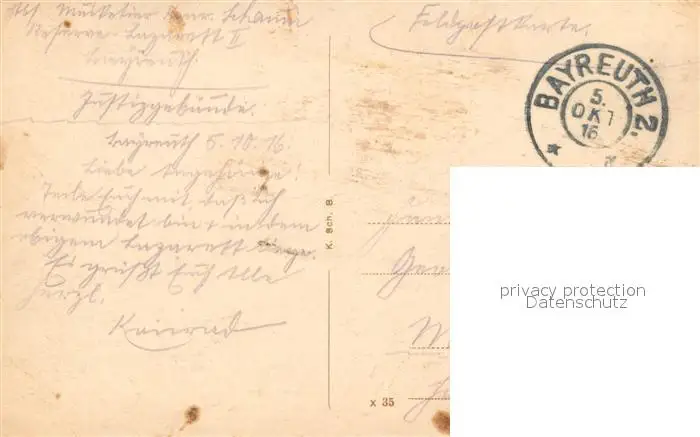 Abs. Musketier Konr. Schamm
Reserve-Lazarett II
Bayreuth.
Justizgebäude.
Bayreuth 5.10.16.
Liebe Angehörige!
Teile Euch mit, daß ich
verwundet bin u. in dem
obigem Lazarett liege.
Es grüßt Euch Alle
herzl.
Konrad
K. Sch. B.
Feldpostkarte.
BAYREUTH 2.
5.
OKT
16
privacy protection
Datenschutz
x 35